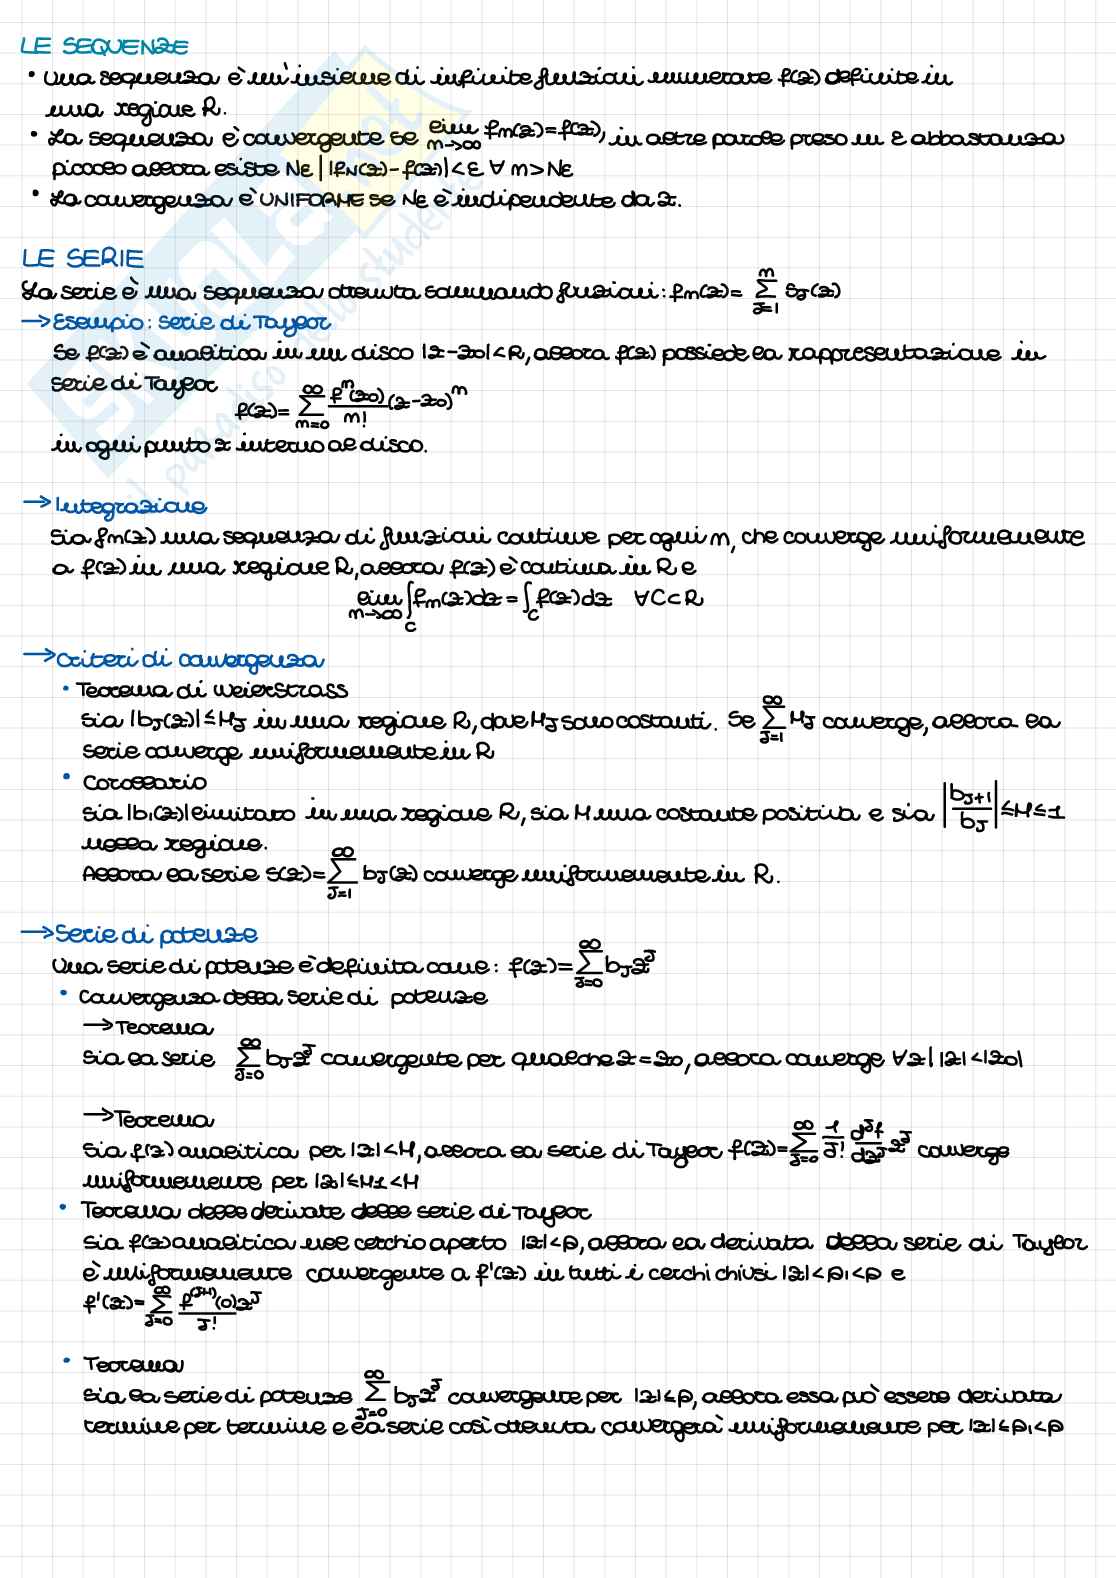 LE SEQUENZE
• Una sequenza è un'insieme di infinite funzioni numerate f(z) definite in
una regione R.
• La sequenza è convergente se lim n→∞ fn(z)=f(z), in altre parole preso un ε abbastanza
piccolo allora esiste Nε | |fN(z)-f(z)|<ε ∀ n>Nε
• La convergenza è UNIFORME se Nε è indipendente da z.
LE SERIE
La serie è una sequenza ottenuta sommando funzioni: fn(z)= ∑_{J=1}^{n} SJ(z)
→ Esempio: serie di Taylor
Se f(z) è analitica in un disco |z-z0|<R, allora f(z) possiede la rappresentazione in
serie di Taylor
f(z)= ∑_{n=0}^{∞} f^n(z0)/n! (z-z0)^n
in ogni punto z interno al disco.
→ Integrazione
Sia fn(z) una sequenza di funzioni continue per ogni n, che converge uniformemente
a f(z) in una regione R, allora f(z) è continua in R e
lim n→∞ ∫_C fn(z)dz = ∫_C f(z)dz ∀C⊂R
→ Criteri di convergenza
• Teorema di Weierstrass
Sia |bJ(z)|≤MJ in una regione R, dove MJ sono costanti. Se ∑_{J=1}^{∞} MJ converge, allora la
serie converge uniformemente in R
• Corollario
Sia |b1(z)| limitato in una regione R, sia M una costante positiva e sia |bJ+1/bJ|≤M≤1
nella regione.
Allora la serie S(z)=∑_{J=1}^{∞} bJ(z) converge uniformemente in R.
→ Serie di potenze
Una serie di potenze è definita come: f(z)=∑_{J=0}^{∞} bJ z^J
• Convergenza della serie di potenze
→ Teorema
Sia la serie ∑_{J=0}^{∞} bJ z^J convergente per qualche z=z0, allora converge ∀z | |z|<|z0|
→ Teorema
Sia f(z) analitica per |z|<M, allora la serie di Taylor f(z)=∑_{J=0}^{∞} 1/J! d^Jf/dz^J z^J converge
uniformemente per |z|≤M1<M
• Teorema delle derivate delle serie di Taylor
Sia f(z) analitica nel cerchio aperto |z|<ρ, allora la derivata della serie di Taylor
è uniformemente convergente a f'(z) in tutti i cerchi chiusi |z|<ρ1<ρ e
f'(z)=∑_{J=0}^{∞} f^(J+1)(0)/J! z^J
• Teorema
Sia la serie di potenze ∑_{J=0}^{∞} bJ z^J convergente per |z|≤ρ, allora essa può essere derivata
termine per termine e la serie così ottenuta convergerà uniformemente per |z|≤ρ1<ρ
SKUOLA.net
il paradiso dello studente